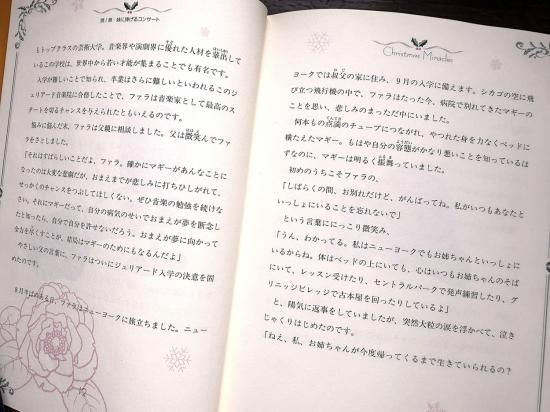 第1章 妹に捧げるコンサート
もトップクラスの芸術大学。音楽界や演劇界に優れた人材を輩出して
いるこの学校は、世界中から若い才能が集まることでも有名です。
入学が難しいことで知られ、卒業はさらに難しいといわれるこのジ
ュリアード音楽院に合格したことで、ファラは音楽家として最高のス
タートを切るチャンスを与えられたともいえるのです。
悩みに悩んだ末、ファラは父親に相談しました。父は微笑んでファ
ラをさとしました。
「それはすばらしいことだよ、ファラ。確かにマギーがあんなことに
なったのは大変な悲劇だが、おまえまでが悲しみに打ちひしがれて、
せっかくのチャンスをつぶしてはしくない。ぜひ音楽の勉強を続けな
さい。それにマギーだって、自分の病気のせいでおまえが夢を断念し
たと知ったら、自分で自分を許せないだろう。おまえが夢に向かって
全力を尽くすことが、結局はマギーのためにもなるんだよ」
やさしい父の言葉に、ファラはついにジュリアード入学の決意を固
めたのです。
8月半ばのある日、ファラはニューヨークに旅立ちました。ニュー
Christmas Miracles
ヨークでは叔父の家に住み、9月の入学に備えます。シカゴの空に飛
び立つ飛行機の中で、ファラはたった今、病院で別れてきたマギー
のことを思い、悲しみのまっただ中にいました。
何本もの点滴のチューブにつながれ、やつれた身を力なくベッドに
横たえたマギー。もはや自分の容態がかなり悪いことを知っているは
ずなのに、マギーは明るく振舞っていました。
初めのうちこそファラの、
「しばらくの間、お別れだけど、がんばってね。私がいつもあなたと
いっしょにいることを忘れないで」
という言葉ににっこり微笑み、
「うん、わかってる。私はニューヨークでもお姉ちゃんといっしょに
いるからね。体はベッドの上にいても、心はいつもお姉ちゃんのそば
にいて、レッスン受けたり、セントラルパークで発声練習したり、グ
リニッジビレッジで古本屋を回ったりしているよ」
と、陽気に返事をしていましたが、突然大粒の涙を浮かべて、泣き
じゃくりはじめたのです。
「ねえ、私、お姉ちゃんが今度帰ってくるまで生きていられるの?